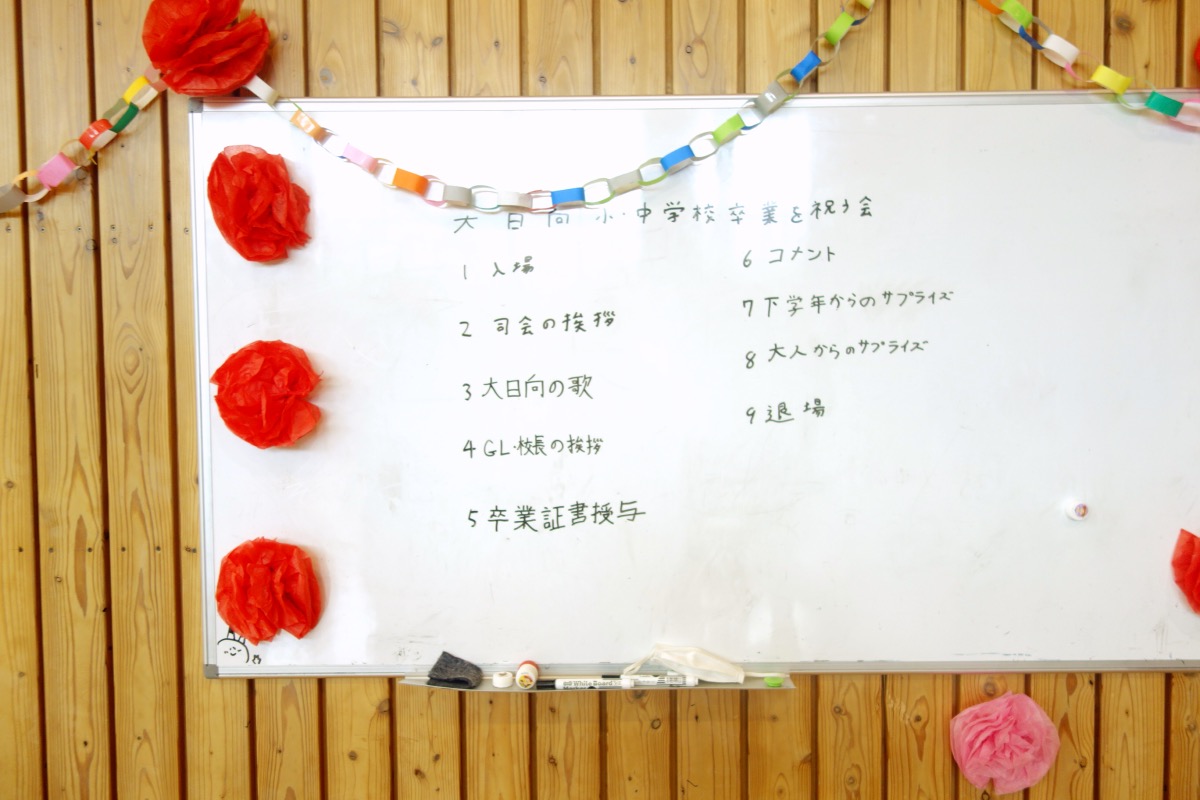 大日向小・中学校卒業を祝う会
1 入場
2 司会の挨拶
3 大日向の歌
4 GL・校長の挨拶
5 卒業証書授与
6 コメント
7 下学年からのサプライズ
8 大人からのサプライズ
9 退場
White Board